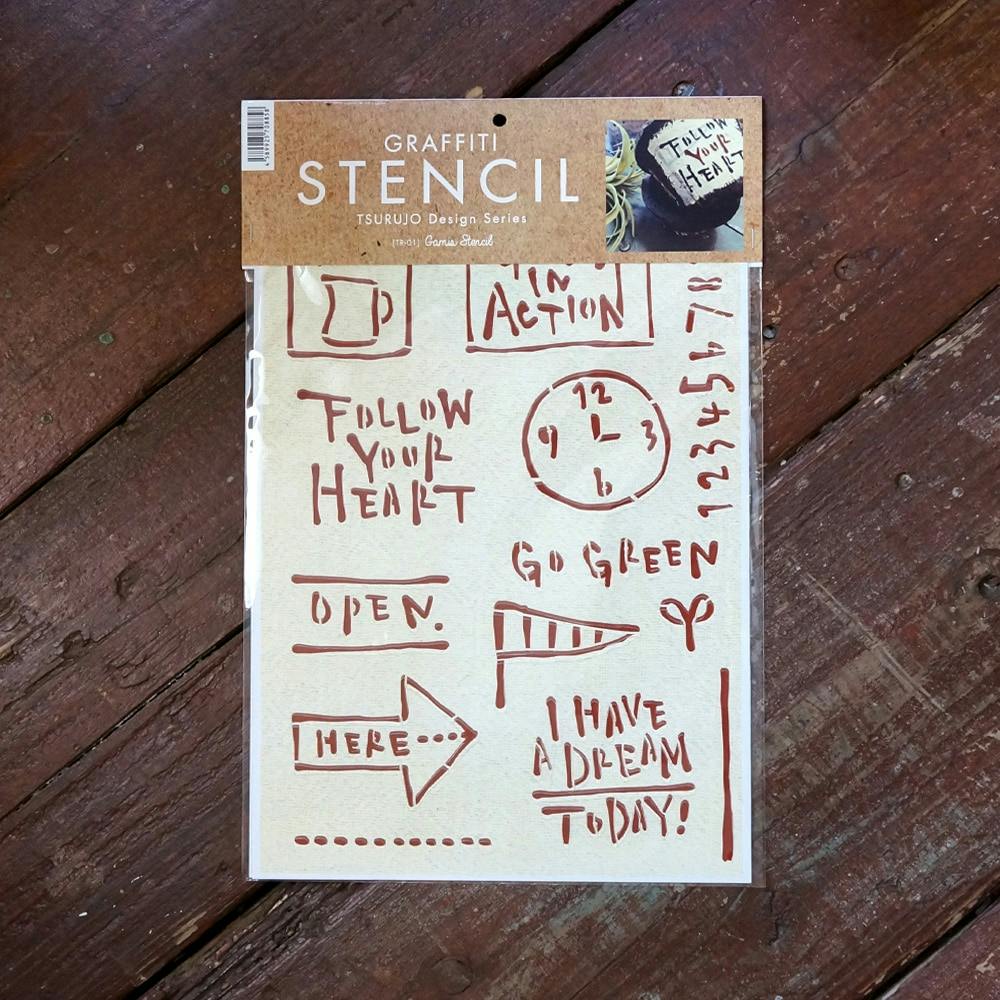 GRAFFITI
STENCIL
TSURUJO Design Series
[TR-01] Gamis Stencil
FOLLOW
YOUR
HEART
IN
ACTION
FOLLOW
YOUR
HEART
12
9 3
6
1 2 3 4 5 6 7 8
GO GREEN
OPEN.
HERE
I HAVE
A DREAM
TODAY!